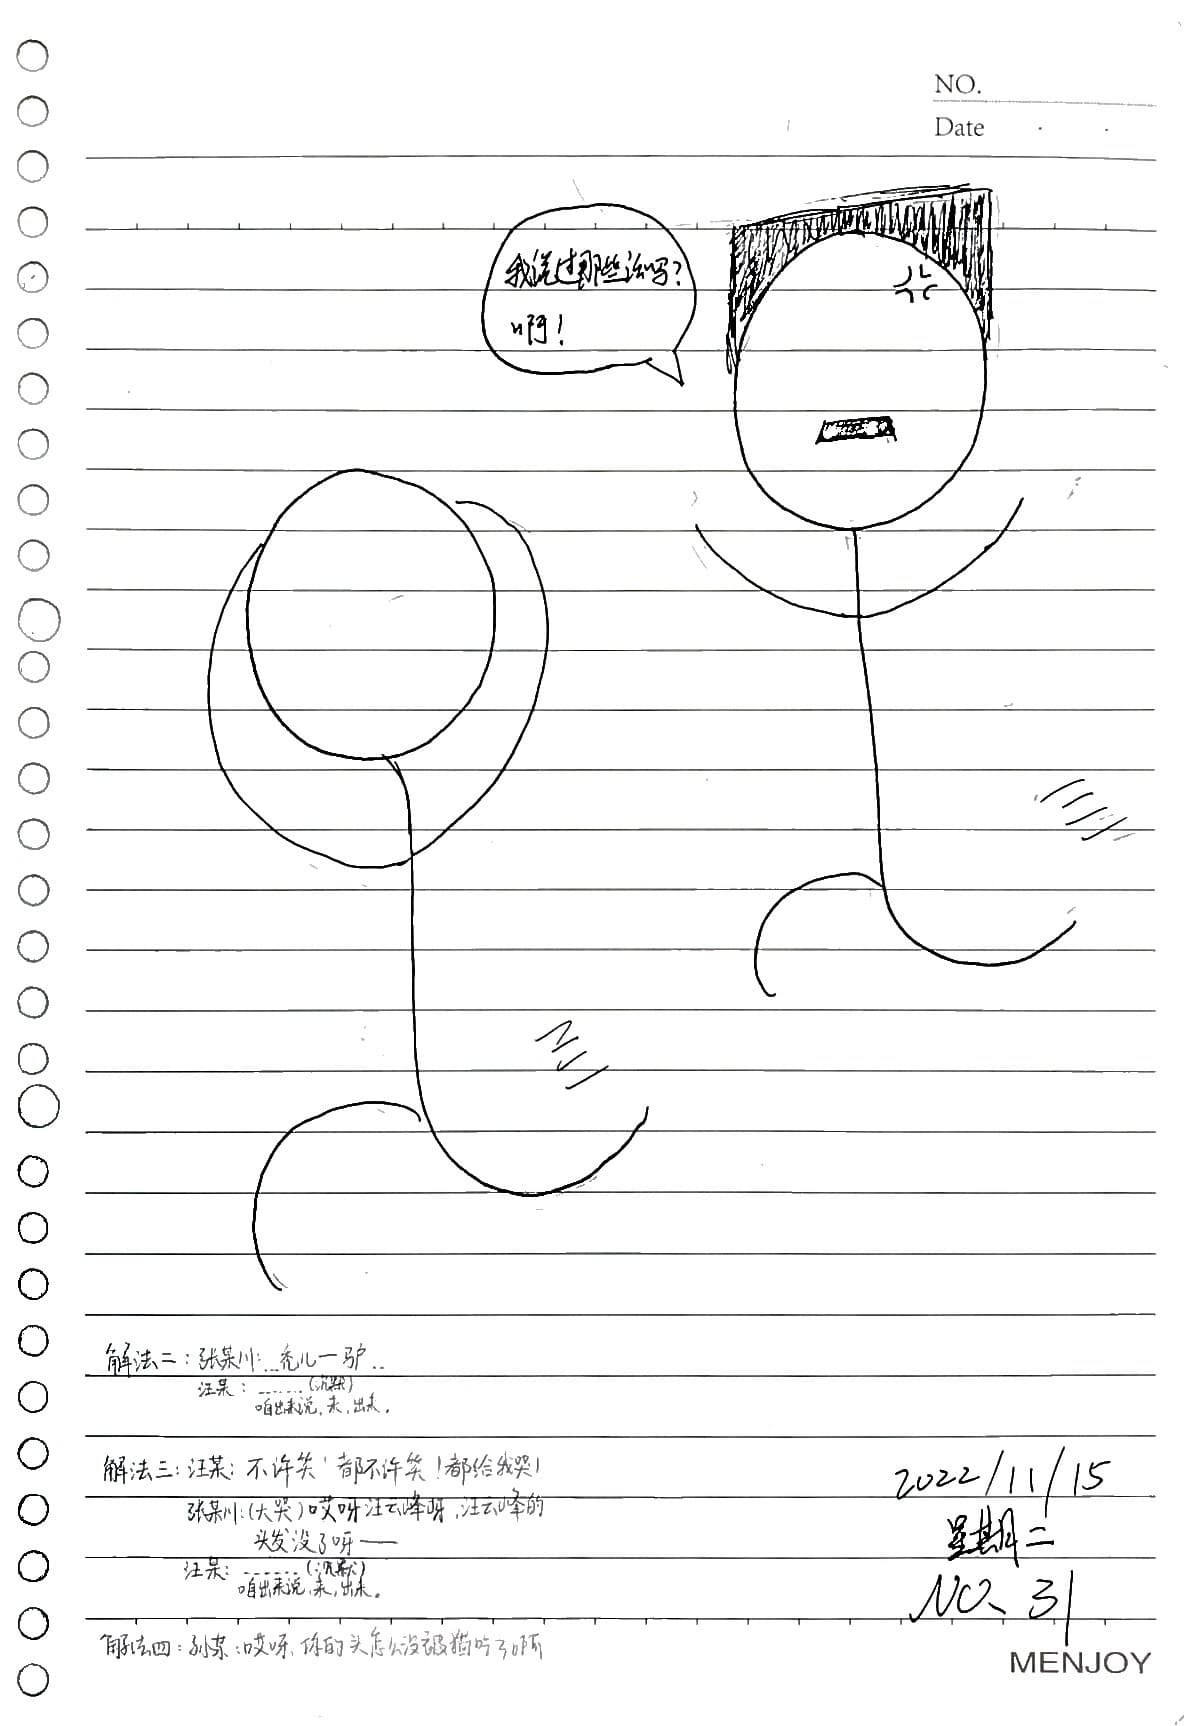 NO.
Date
我说过那些话吗?
啊!
解法二:张某川:...秃儿一驴..
汪某:......(沉默)
咱出来说,来,出来。
解法三:汪某:不许笑!都不许笑!都给我哭!
张某川:(大哭)哎呀汪云峰呀,汪云峰的
头发没了呀——
汪某:......(沉默)
咱出来说,来,出来。
解法四:孙某:哎呀,你的头怎么没被猫吃了啊
2022/11/15
星期二
NO、31
MENJOY